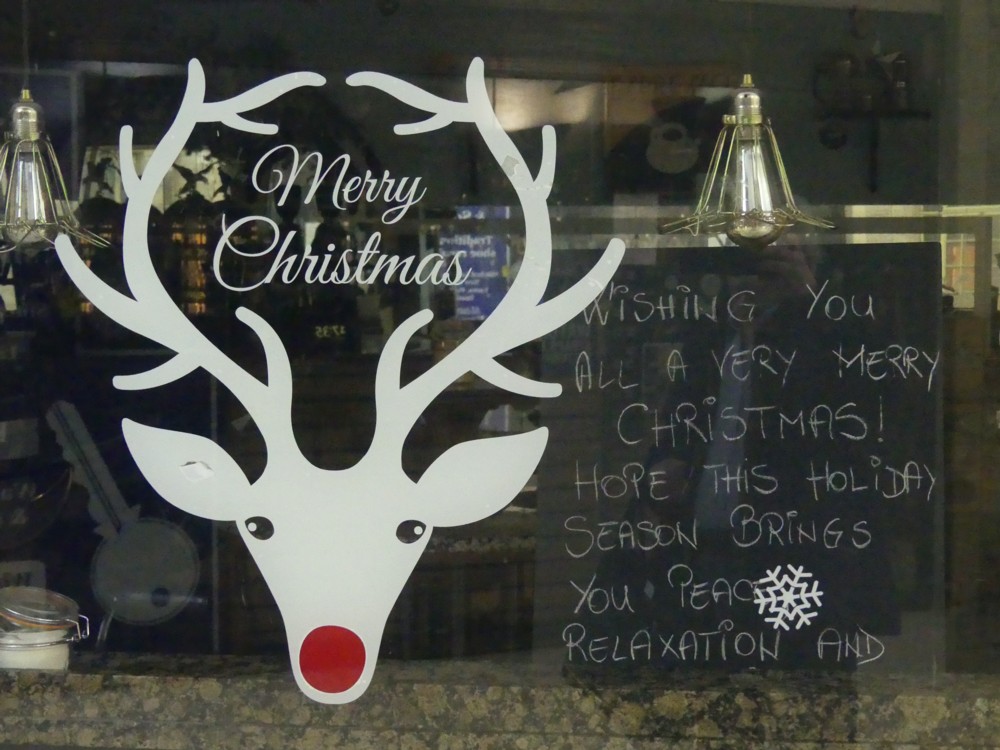 Merry
Christmas
WISHING YOU
ALL A VERY MERRY
CHRISTMAS!
HOPE THIS HOLIDAY
SEASON BRINGS
YOU PEACE
RELAXATION AND
Tradition
1735